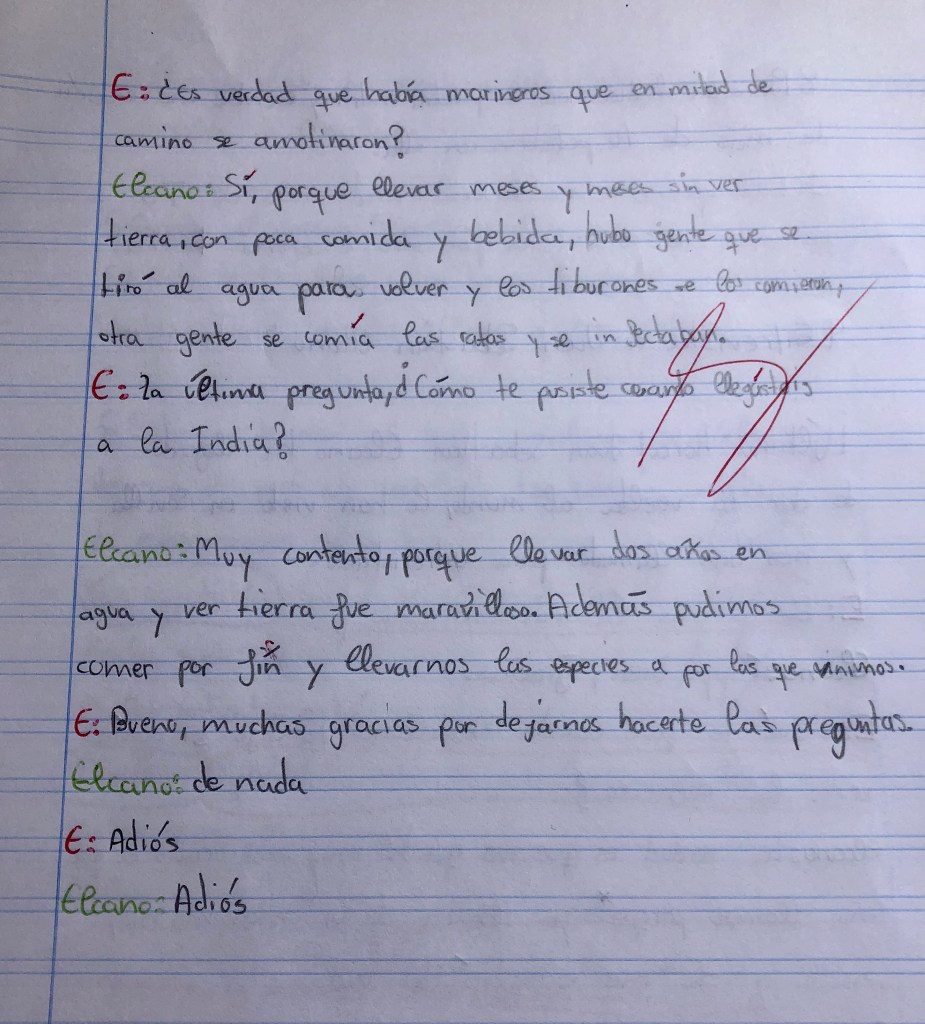 E: ¿Es verdad que había marineros que en mitad de
camino se amotinaron?
Elcano: Sí, porque llevar meses y meses sin ver
tierra, con poca comida y bebida, hubo gente que se
tiró al agua para volver y los tiburones se los comieron,
otra gente se comía las ratas y se infectaban.
E: la última pregunta, ¿Cómo te pusiste cuando llegásteis
a la India?
Elcano: Muy contento, porque llevar dos años en
agua y ver tierra fue maravilloso. Además pudimos
comer por fin y llevarnos las especies a por las que vinimos.
E: Bueno, muchas gracias por dejárnos hacerte las preguntas.
Elcano: de nada
E: Adiós
Elcano: Adiós